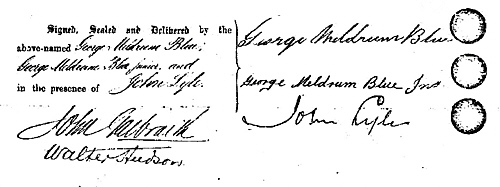 Signed, Sealed and Delivered by the
above-named George Meldrum Blue,
George Meldrum Blue, junior, and
in the presence of John Lyle.
John Galbraith
Walter Hudson
George Meldrum Blue
George Meldrum Blue Jnr
John Lyle